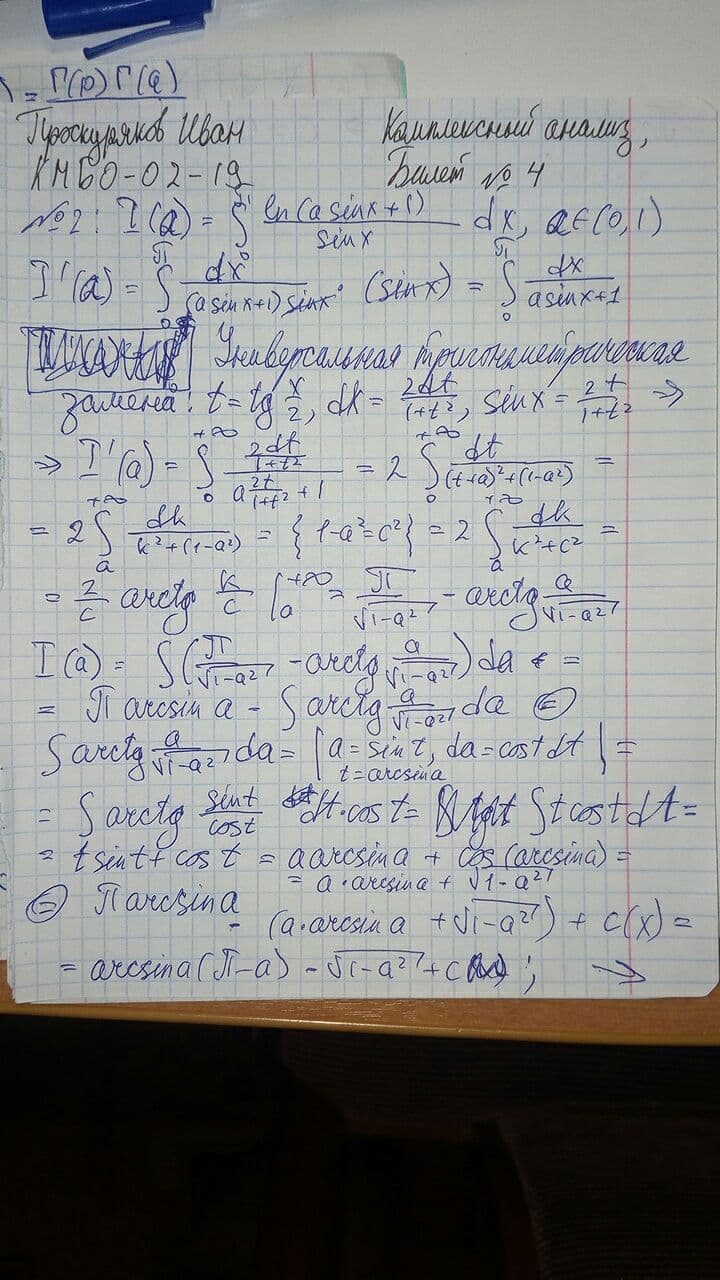 ) = Г(p) Г(q)
Проскуряков Иван Комплексный анализ,
КМБО-02-19 Билет № 4
№2: I(a) = ∫₀^π ln(a sinx+1)/sinx dx, a∈(0,1)
I'(a) = ∫₀^π dx/((a sinx+1) sinx) · (sinx) = ∫₀^π dx/(a sinx+1)
Универсальная тригонометрическая
замена: t = tg x/2, dx = 2dt/(1+t²), sinx = 2t/(1+t²) ⇒
⇒ I'(a) = ∫₀^{+∞} (2dt/(1+t²))/(a 2t/(1+t²) + 1) = 2 ∫₀^{+∞} dt/((t+a)²+(1-a²)) =
= 2 ∫ₐ^{+∞} dk/(k²+(1-a²)) = {1-a²=c²} = 2 ∫ₐ^{+∞} dk/(k²+c²) =
= 2/c arctg k/c |ₐ^{+∞} = π/√(1-a²) - arctg a/√(1-a²)
I(a) = ∫(π/√(1-a²) - arctg a/√(1-a²)) da =
= π arcsin a - ∫ arctg a/√(1-a²) da ⊜
∫ arctg a/√(1-a²) da = | a = sin t, da = cos t dt | =
t = arcsin a
= ∫ arctg sin t/cos t dt · cos t = ∫ t cos t dt =
= t sin t + cos t = a arcsin a + cos(arcsin a) =
= a · arcsin a + √(1-a²)
⊜ π arcsin a - (a · arcsin a + √(1-a²)) + c(x) =
= arcsin a (π-a) - √(1-a²) + c ; →